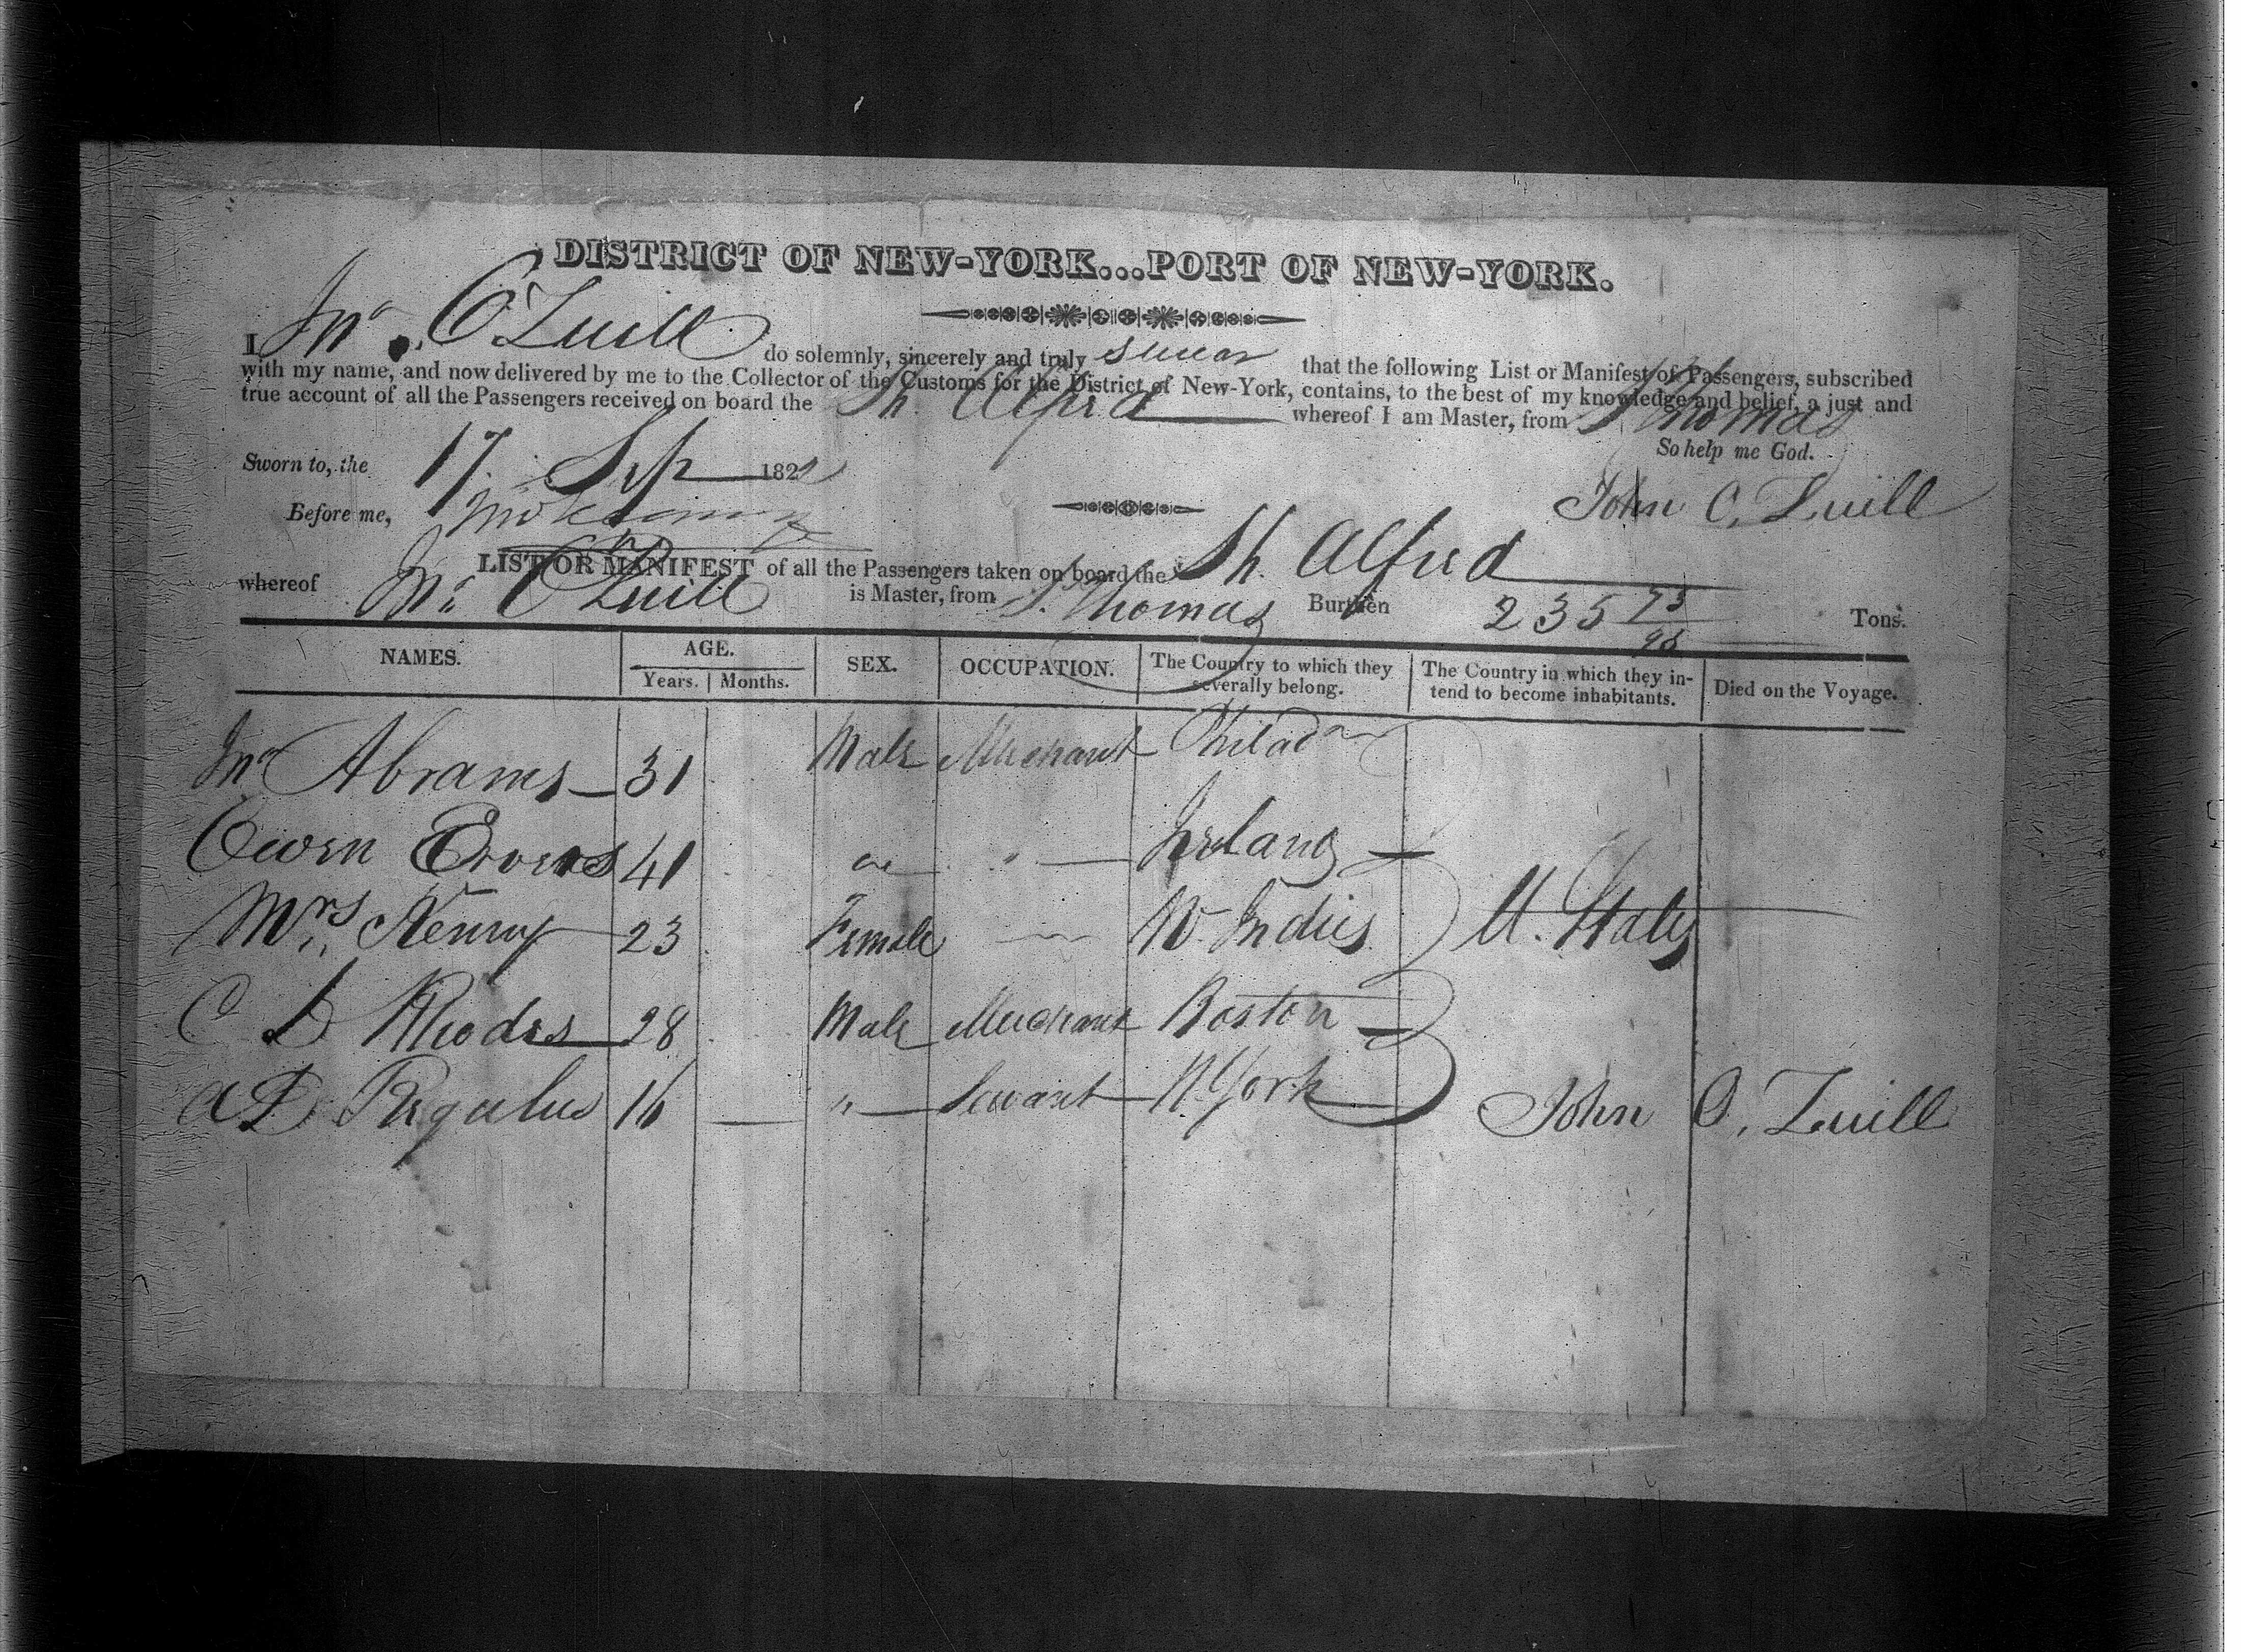 DISTRICT OF NEW-YORK...PORT OF NEW-YORK.
I Jno. C Zuill do solemnly, sincerely and truly swear that the following List or Manifest of Passengers, subscribed
with my name, and now delivered by me to the Collector of the Customs for the District of New-York, contains, to the best of my knowledge and belief, a just and
true account of all the Passengers received on board the Sh. Alfred whereof I am Master, from St Thomas
So help me God.
Sworn to, the 17 Sep 182
Before me,
John C. Zuill
LIST OR MANIFEST of all the Passengers taken on board the Sh. Alfred
whereof Jno C Zuill is Master, from St. Thomas Burthen 235 73/95 Tons.
NAMES. AGE. SEX. OCCUPATION. The Country to which they severally belong. The Country in which they in-tend to become inhabitants. Died on the Voyage.
Years. Months.
Jno Abrams 31 Male Merchant Philada
Owen Evens 41 do " Ireland
Mrs. Henry 23 Female W. Indies U. States
C D Rhodes 28 Male Merchant Boston
A D Regulus 16 " Servant N. York
John C. Zuill